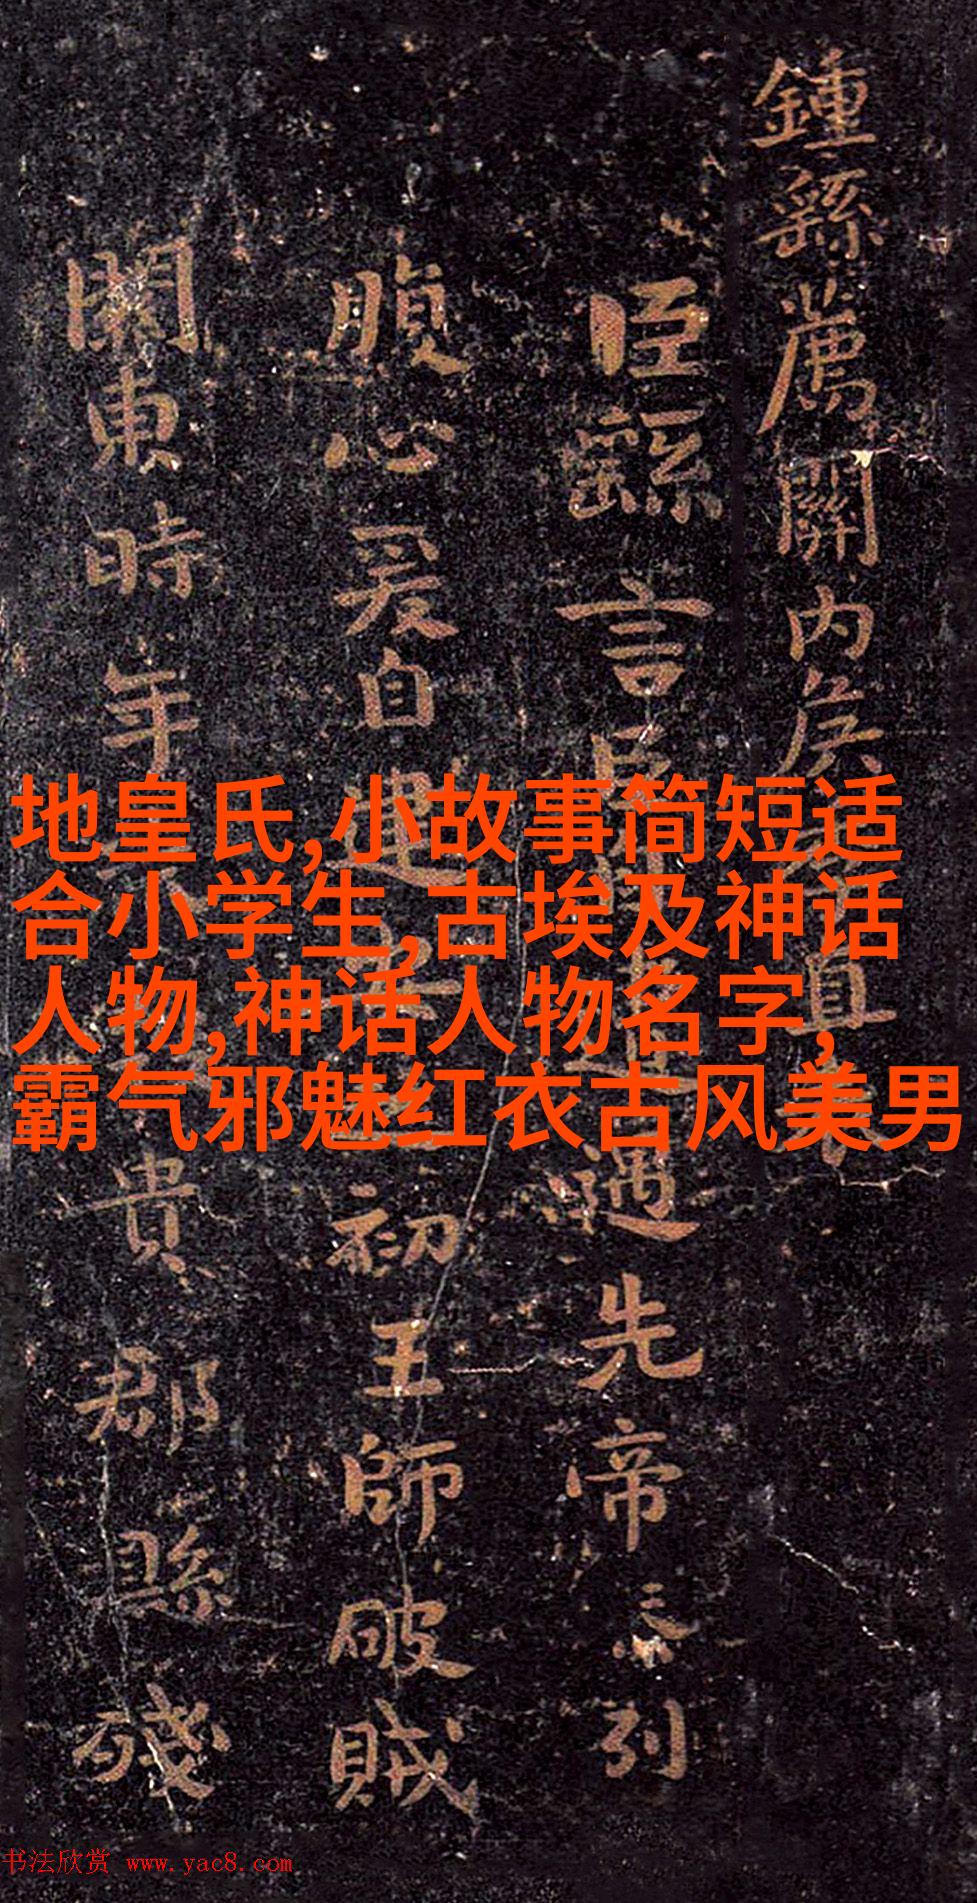 鍾繇薦關内侯直
臣繇言臣遇先帝忝列
腹心爰自建初王師破賊
關東時年貴郡縣殘
地皇氏,小故事简短适
合小学生,古埃及神话
人物,神话人物名字,
霸气邪魅红衣古风美男
书法欣赏 www.yac8.com